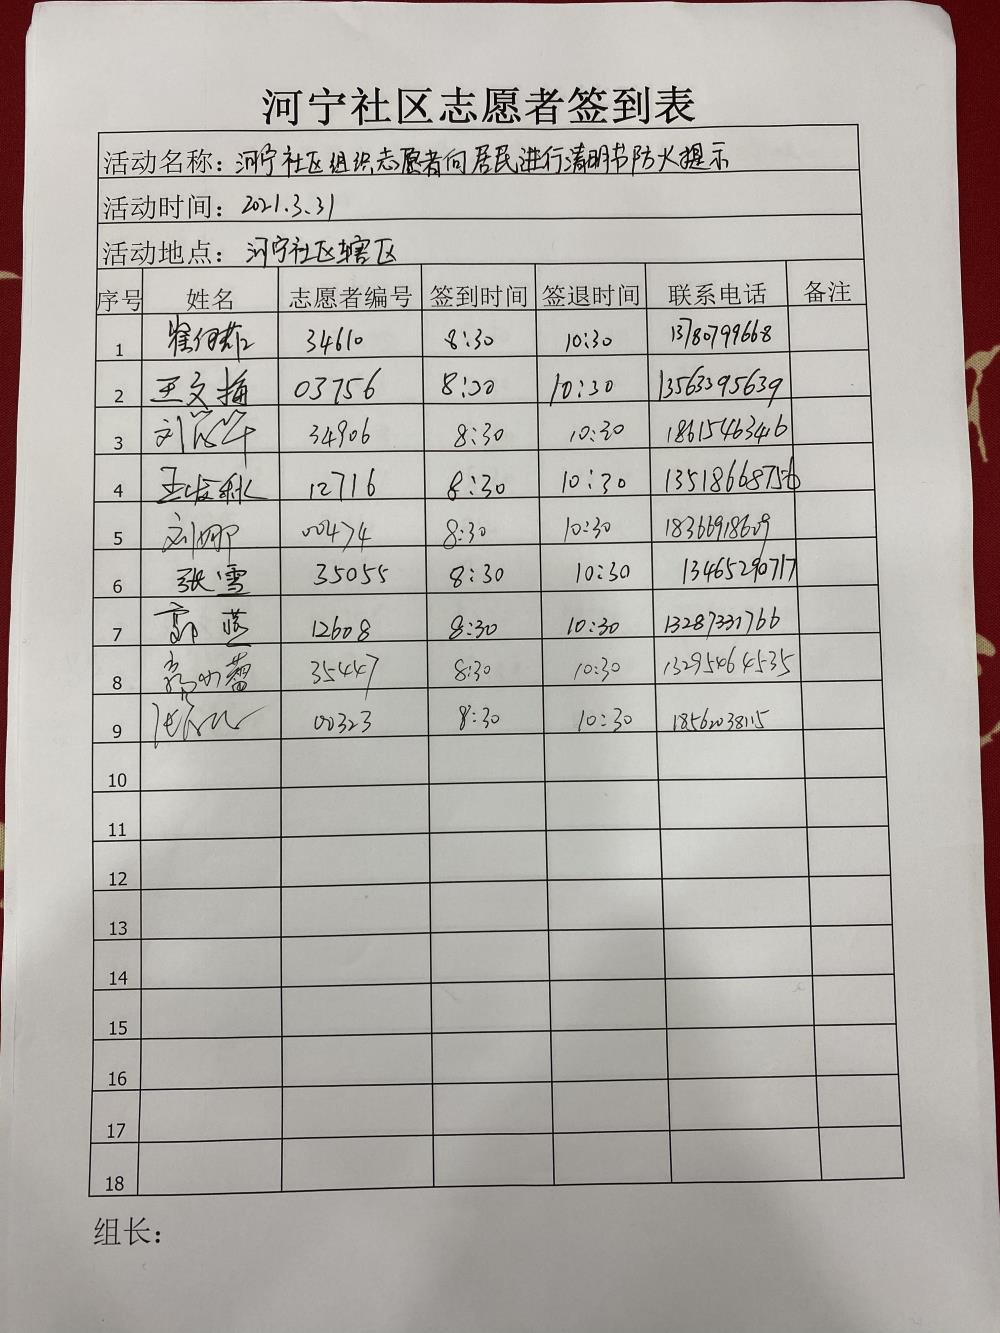 河宁社区志愿者签到表
活动名称：河宁社区组织志愿者向居民进行清明节防火提示
活动时间：2021.3.31
活动地点：河宁社区辖区
序号 姓名 志愿者编号 签到时间 签退时间 联系电话 备注
1 34610 8:30 10:30 13780799668
2 王文梅 03756 8:30 10:30 13563395639
3 刘 34906 8:30 10:30 18615463416
4 王 12716 8:30 10:30 13518668756
5 刘娜 00474 8:30 10:30 18366918609
6 张雪 35055 8:30 10:30 13465290717
7 12608 8:30 10:30 13287331766
8 35447 8:30 10:30 13295464535
9 00323 8:30 10:30 18562038115
10
11
12
13
14
15
16
17
18
组长：